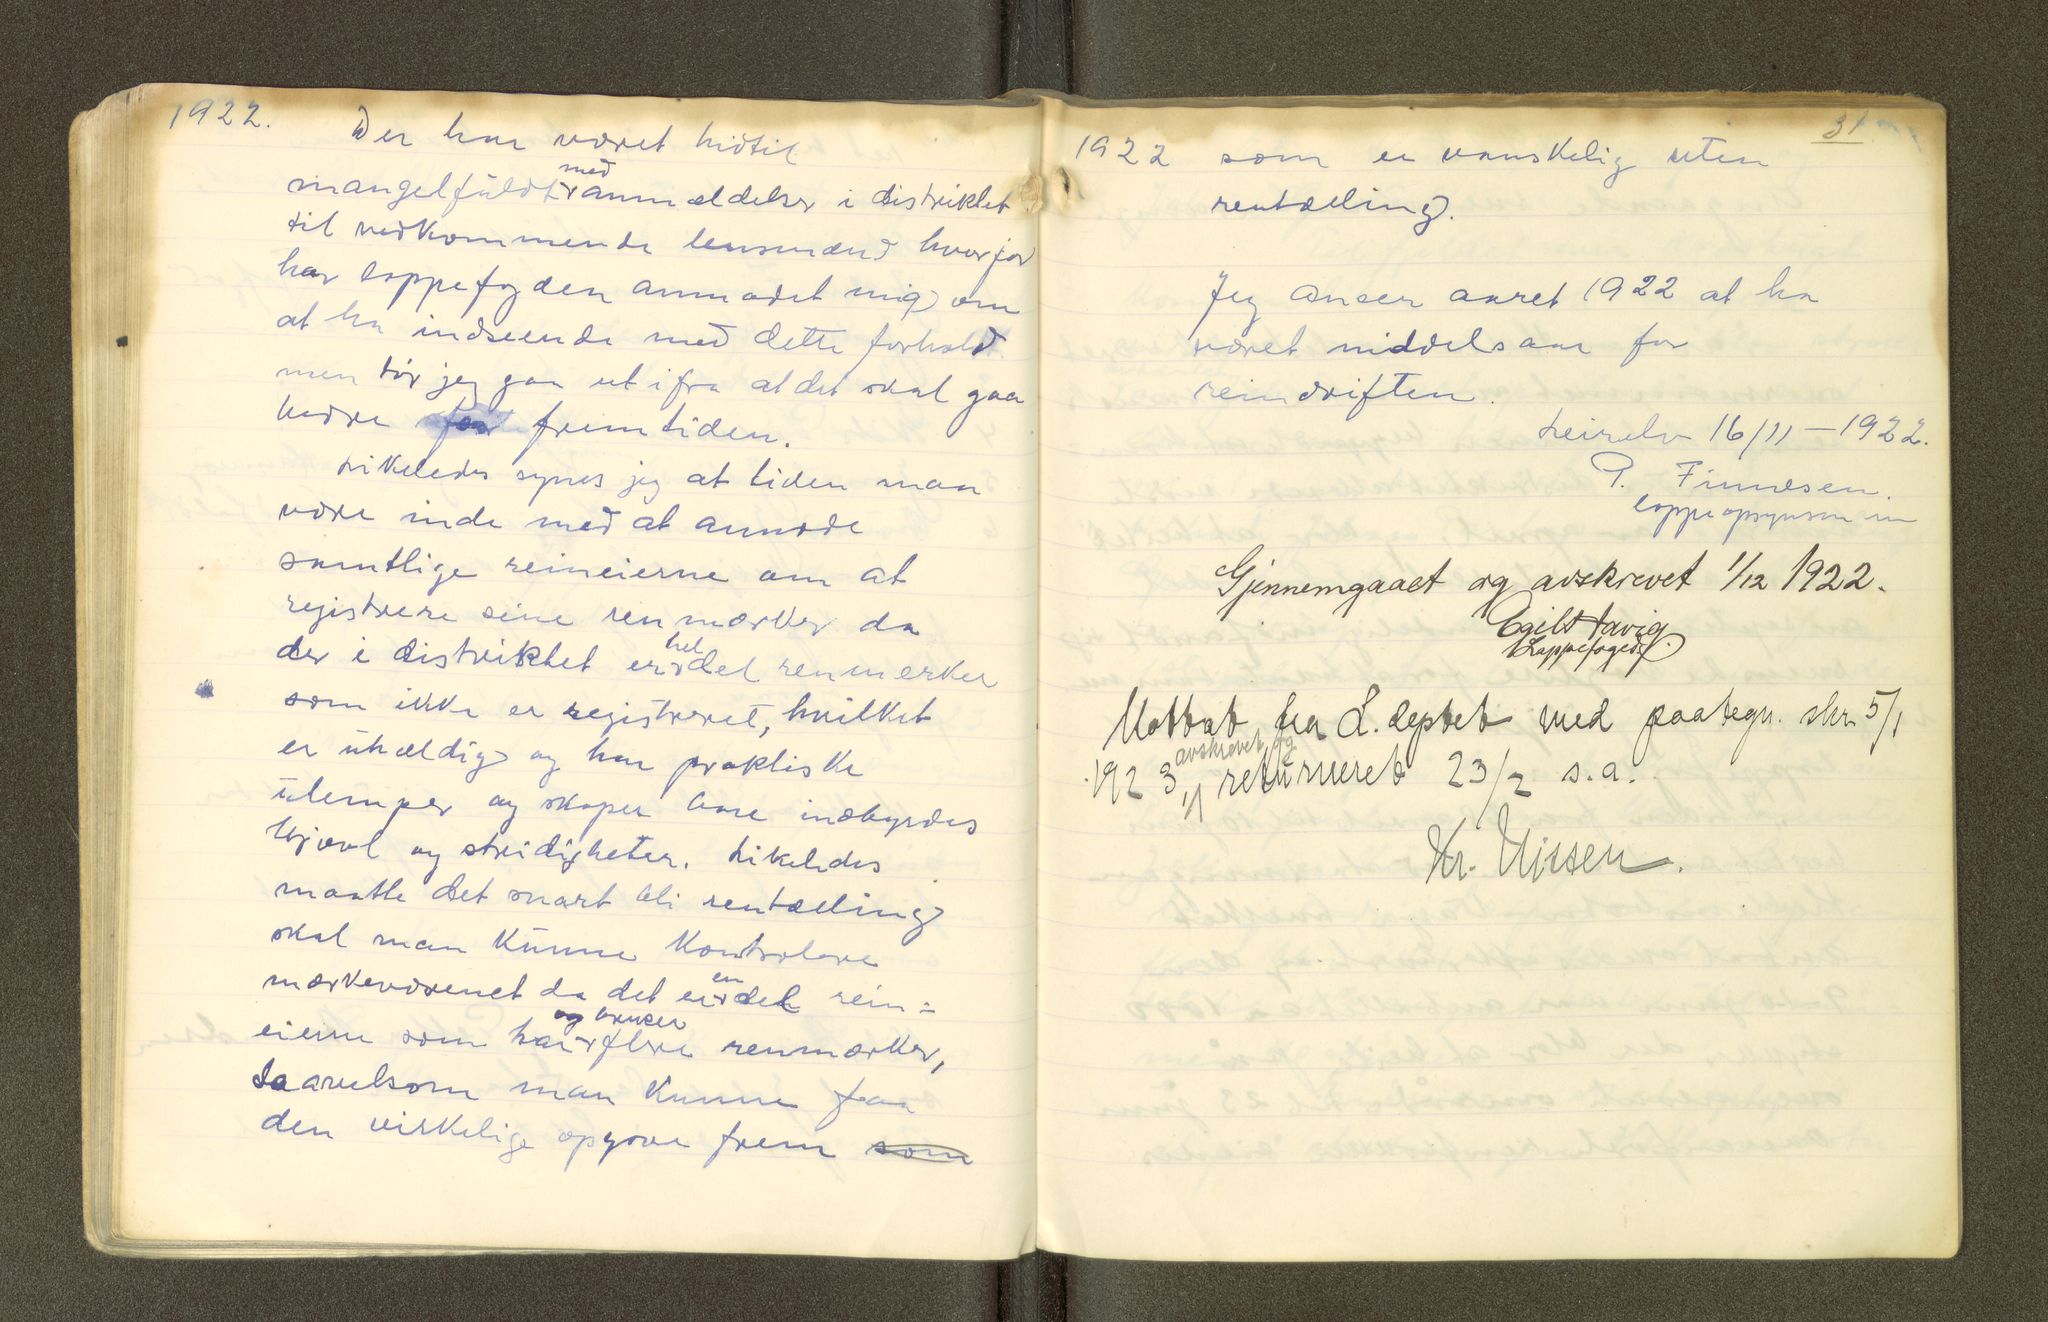 1922.
Der har været hidtil
mangelfuldt med anmældelser i distriktet
til vedkommende lensmænd hvorfor
har lappefogden anmodet mig om
at ha indseende med dette forhold
men tør jeg gaa ut ifra at det skal gaa
bedre for fremtiden.
Likeledes synes jeg at tiden maa
være inde med at anmode
samtlige reineierne om at
registrere sine renmærker da
der i distriktet er hel del renmerker
som ikke er registreret, hvilket
er uheldig og har praktiske
ulemper og skaper bare indbyrdes
kjævl og stridigheter. Likeledes
maatte det snart bli rentælling
skal man kunne kontrolere
merkevæsenet da det er en del rein=
eierne som har og bruker flere renmærker,
saavelsom man kunne faa
den virkelige opgove frem som
31
1922 som er vanskelig uten
rentælling.
Jeg anser aaret 1922 at ha
været middelsaar for
reindriften.
Leirelv 16/11 – 1922.
P. Finnesen.
lappeopsynsm
Gjennemgaaet og avskrevet 1/12 1922.
Egil Havig.
Lappefoged
Mottat fra L.deptet med paategn. skr. 5/1
1923, avskrevet og returneret 23/2 s.a.
Kr. Nissen.